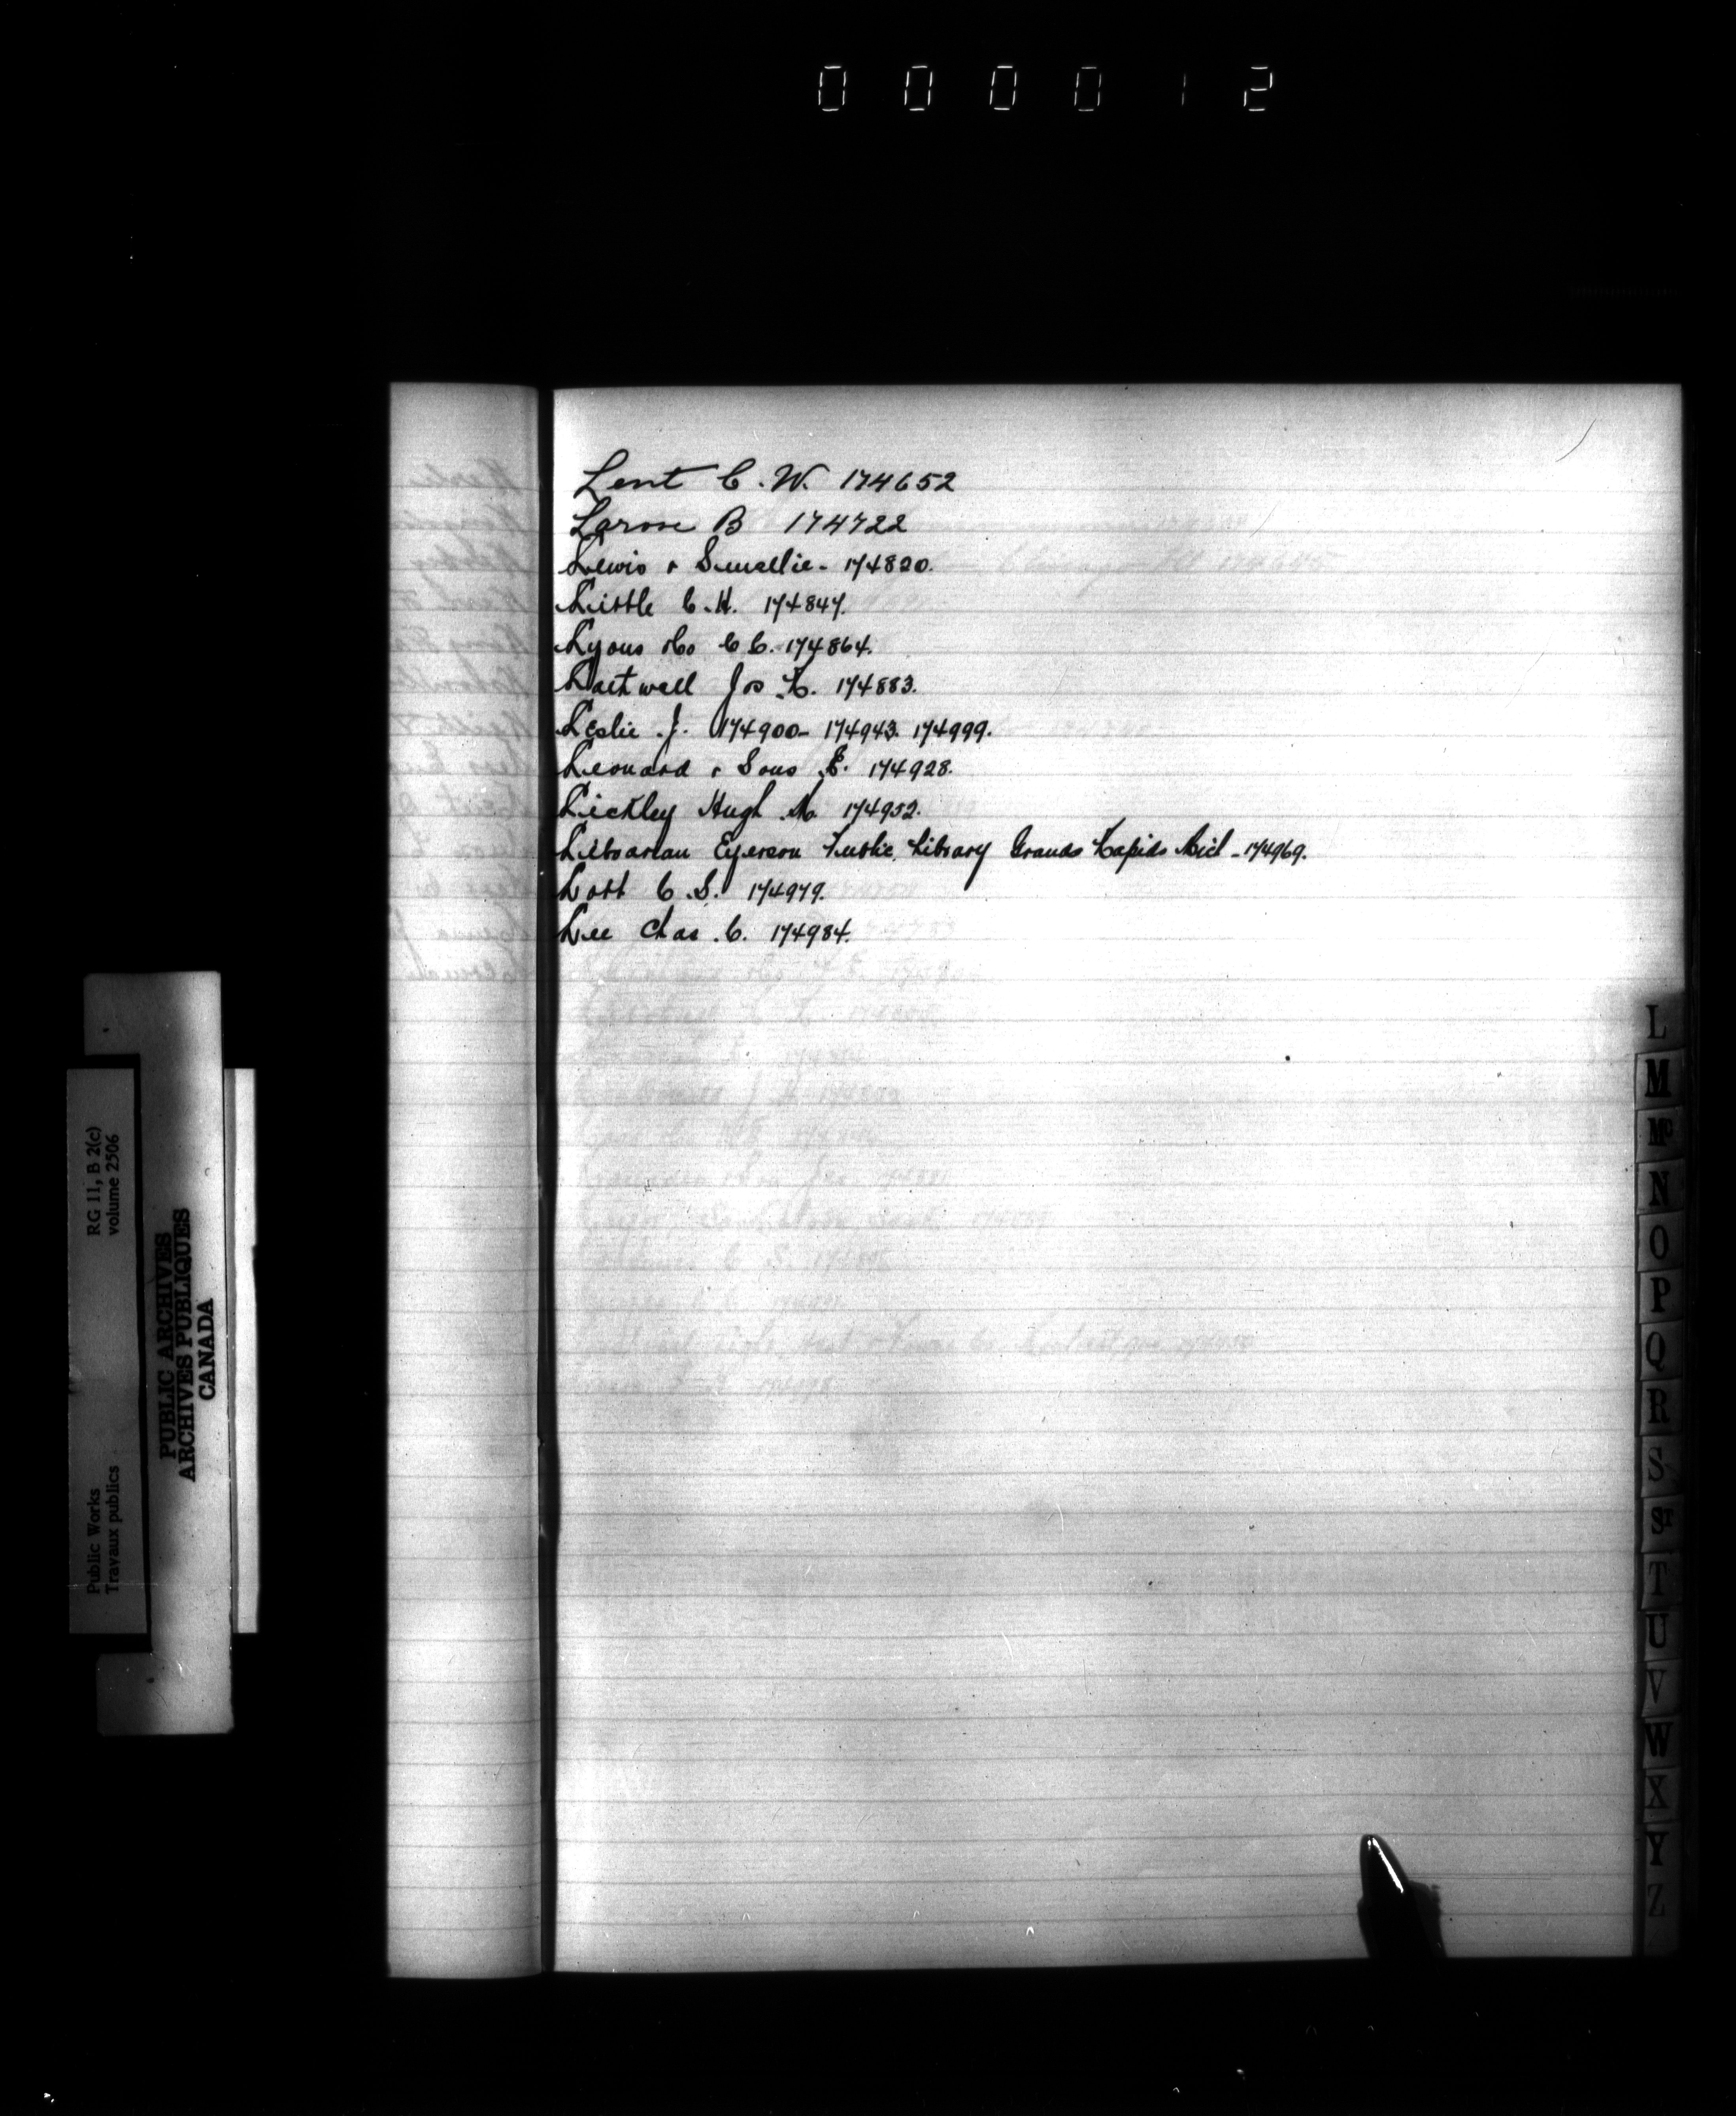 000012
Lent C. W. 174652
Larose B 174722
Lewis & Smellie - 174820.
Little C. H. 174847.
Lyons Co C C. 174864.
Jos 174883.
Leslie J. 174900 - 174943. 174999.
Leonard & Sons E. 174928.
Lickley Hugh M. 174952.
Librarian Public Library Grands Rapids Mich - 174969.
Lott C. S. 174979.
Lee Chas. C. 174984.
L
M
Mc
N
O
P
Q
R
S
ST
T
U
V
W
X
Y
Z
Public Works
Travaux publics
RG 11, B 2(c)
volume 2506
PUBLIC ARCHIVES
ARCHIVES PUBLIQUES
CANADA